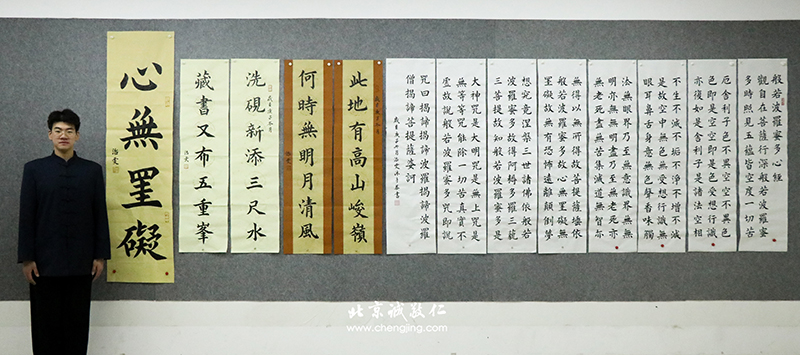 般若波羅蜜多心經
觀自在菩薩行深般若波羅蜜
多時照見五蘊皆空度一切苦
厄舍利子色不異空空不異色
色即是空空即是色受想行識
亦復如是舍利子是諸法空相
不生不滅不垢不淨不增不減
是故空中無色無受想行識無
眼耳鼻舌身意無色聲香味觸
法無眼界乃至無意識界無無
明亦無無明盡乃至無老死亦
無老死盡無苦集滅道無智亦
無得以無所得故菩提薩埵依
般若波羅蜜多故心無罣礙無
罣礙故無有恐怖遠離顛倒夢
想究竟涅槃三世諸佛依般若
波羅蜜多故得阿耨多羅三藐
三菩提故知般若波羅蜜多是
大神咒是大明咒是無上咒是
無等等咒能除一切苦真實不
虛故說般若波羅蜜多咒即說
咒曰揭諦揭諦波羅揭諦波羅
僧揭諦菩提薩婆訶
此地有高山峻嶺
何時無明月清風
洗硯新添三尺水
藏書又布五重峯
心無罣礙
北京诚敬仁
www.chengjing.com